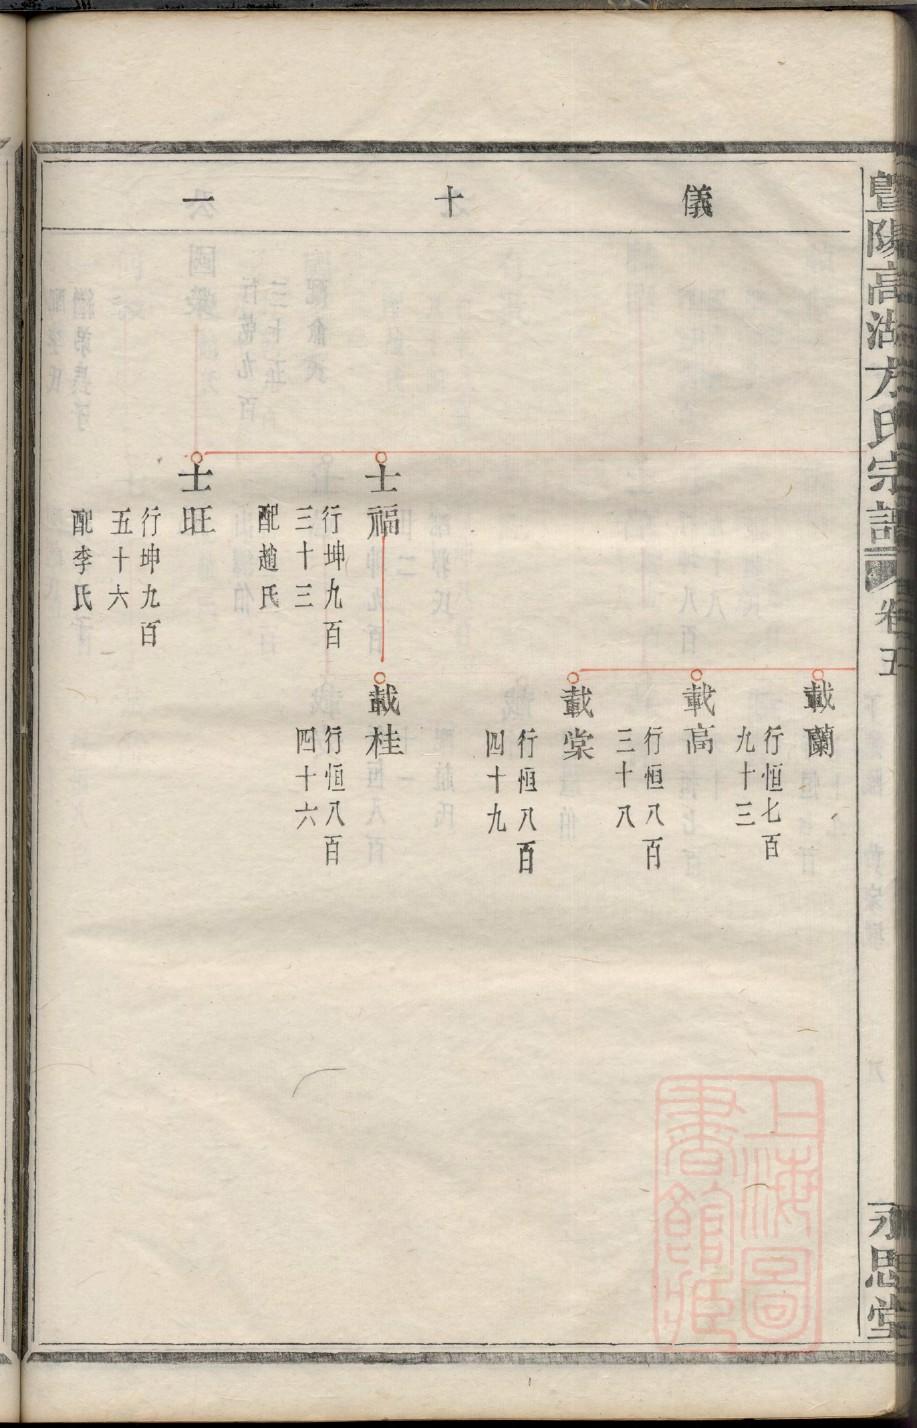 暨陽高湖方氏宗譜
卷五
永思堂
儀十一
載蘭
行恒七百
九十三
載高
行恒八百
三十八
載棠
行恒八百
四十九
士福
行坤九百
三十三
配趙氏
載桂
行恒八百
四十六
士旺
行坤九百
五十六
配李氏
上海圖
書館藏